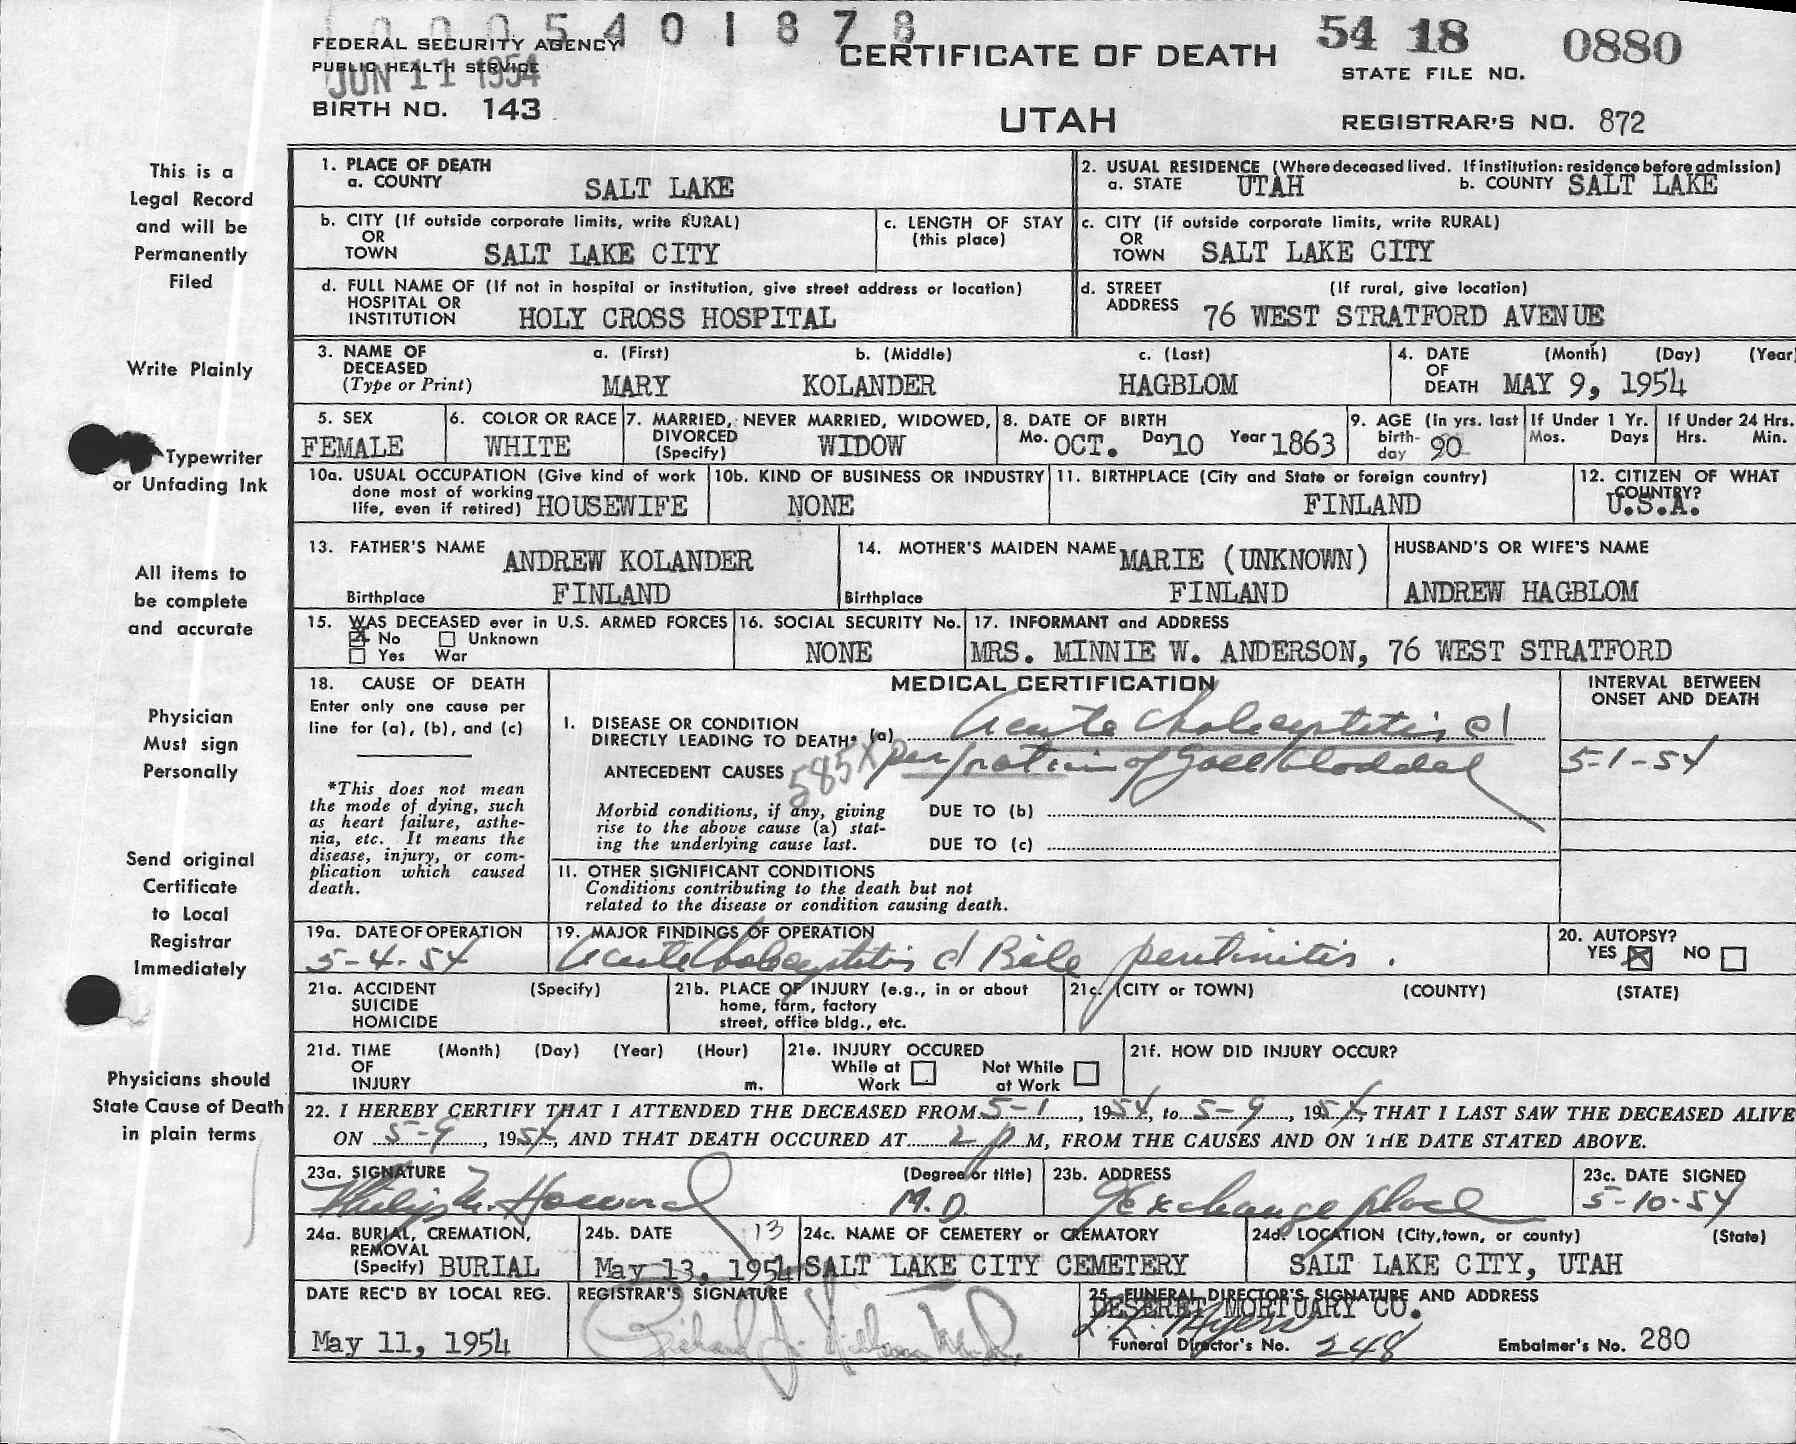 0005401878
FEDERAL SECURITY AGENCY
PUBLIC HEALTH SERVICE
JUN 11 1954
BIRTH NO. 143
CERTIFICATE OF DEATH
UTAH
54 18 0880
STATE FILE NO.
REGISTRAR'S NO. 872
This is a
Legal Record
and will be
Permanently
Filed
Write Plainly
Typewriter
or Unfading Ink
All items to
be complete
and accurate
Physician
Must sign
Personally
Send original
Certificate
to Local
Registrar
Immediately
Physicians should
State Cause of Death
in plain terms
1. PLACE OF DEATH
a. COUNTY SALT LAKE
2. USUAL RESIDENCE (Where deceased lived. If institution: residence before admission)
a. STATE UTAH b. COUNTY SALT LAKE
b. CITY (If outside corporate limits, write RURAL)
OR
TOWN SALT LAKE CITY
c. LENGTH OF STAY
(this place)
c. CITY (if outside corporate limits, write RURAL)
OR
TOWN SALT LAKE CITY
d. FULL NAME OF (If not in hospital or institution, give street address or location)
HOSPITAL OR
INSTITUTION HOLY CROSS HOSPITAL
d. STREET (If rural, give location)
ADDRESS 76 WEST STRATFORD AVENUE
3. NAME OF a. (First) b. (Middle) c. (Last)
DECEASED
(Type or Print) MARY KOLANDER HAGBLOM
4. DATE (Month) (Day) (Year)
OF
DEATH MAY 9, 1954
5. SEX
FEMALE
6. COLOR OR RACE
WHITE
7. MARRIED, NEVER MARRIED, WIDOWED,
DIVORCED
(Specify) WIDOW
8. DATE OF BIRTH
Mo. OCT. Day 10 Year 1863
9. AGE (In yrs. last
birth-
day 90
If Under 1 Yr.
Mos. Days
If Under 24 Hrs.
Hrs. Min.
10a. USUAL OCCUPATION (Give kind of work
done most of working
life, even if retired) HOUSEWIFE
10b. KIND OF BUSINESS OR INDUSTRY
NONE
11. BIRTHPLACE (City and State or foreign country)
FINLAND
12. CITIZEN OF WHAT
COUNTRY?
U.S.A.
13. FATHER'S NAME ANDREW KOLANDER
Birthplace FINLAND
14. MOTHER'S MAIDEN NAME MARIE (UNKNOWN)
Birthplace FINLAND
HUSBAND'S OR WIFE'S NAME
ANDREW HAGBLOM
15. WAS DECEASED ever in U.S. ARMED FORCES
X No Unknown
Yes War
16. SOCIAL SECURITY No.
NONE
17. INFORMANT and ADDRESS
MRS. MINNIE W. ANDERSON, 76 WEST STRATFORD
18. CAUSE OF DEATH
Enter only one cause per
line for (a), (b), and (c)
*This does not mean
the mode of dying, such
as heart failure, asthe-
nia, etc. It means the
disease, injury, or com-
plication which caused
death.
MEDICAL CERTIFICATION
INTERVAL BETWEEN
ONSET AND DEATH
I. DISEASE OR CONDITION
DIRECTLY LEADING TO DEATH* (a) Acute Cholecystitis c
ANTECEDENT CAUSES 585X perforation of Gall bladder
5-1-54
Morbid conditions, if any, giving
rise to the above cause (a) stat-
ing the underlying cause last.
DUE TO (b)
DUE TO (c)
II. OTHER SIGNIFICANT CONDITIONS
Conditions contributing to the death but not
related to the disease or condition causing death.
19a. DATE OF OPERATION
5-4-54
19. MAJOR FINDINGS OF OPERATION
Acute Cholecystitis c Bile peritinitis.
20. AUTOPSY?
YES X NO
21a. ACCIDENT (Specify)
SUICIDE
HOMICIDE
21b. PLACE OF INJURY (e.g., in or about
home, farm, factory
street, office bldg., etc.
21c. (CITY or TOWN) (COUNTY) (STATE)
21d. TIME (Month) (Day) (Year) (Hour)
OF
INJURY m.
21e. INJURY OCCURED
While at Work Not While at Work
21f. HOW DID INJURY OCCUR?
22. I HEREBY CERTIFY THAT I ATTENDED THE DECEASED FROM 5-1, 1954, to 5-9, 1954, THAT I LAST SAW THE DECEASED ALIVE
ON 5-9, 1954, AND THAT DEATH OCCURED AT 2 P M, FROM THE CAUSES AND ON THE DATE STATED ABOVE.
23a. SIGNATURE (Degree or title)
Philip M. Howard M.D.
23b. ADDRESS
9 Exchange place
23c. DATE SIGNED
5-10-54
24a. BURIAL, CREMATION,
REMOVAL
(Specify) BURIAL
24b. DATE 13
May 13, 1954
24c. NAME OF CEMETERY or CREMATORY
SALT LAKE CITY CEMETERY
24d. LOCATION (City, town, or county) (State)
SALT LAKE CITY, UTAH
DATE REC'D BY LOCAL REG.
May 11, 1954
REGISTRAR'S SIGNATURE
25. FUNERAL DIRECTOR'S SIGNATURE AND ADDRESS
DESERET MORTUARY CO.
Funeral Director's No. 248
Embalmer's No. 280